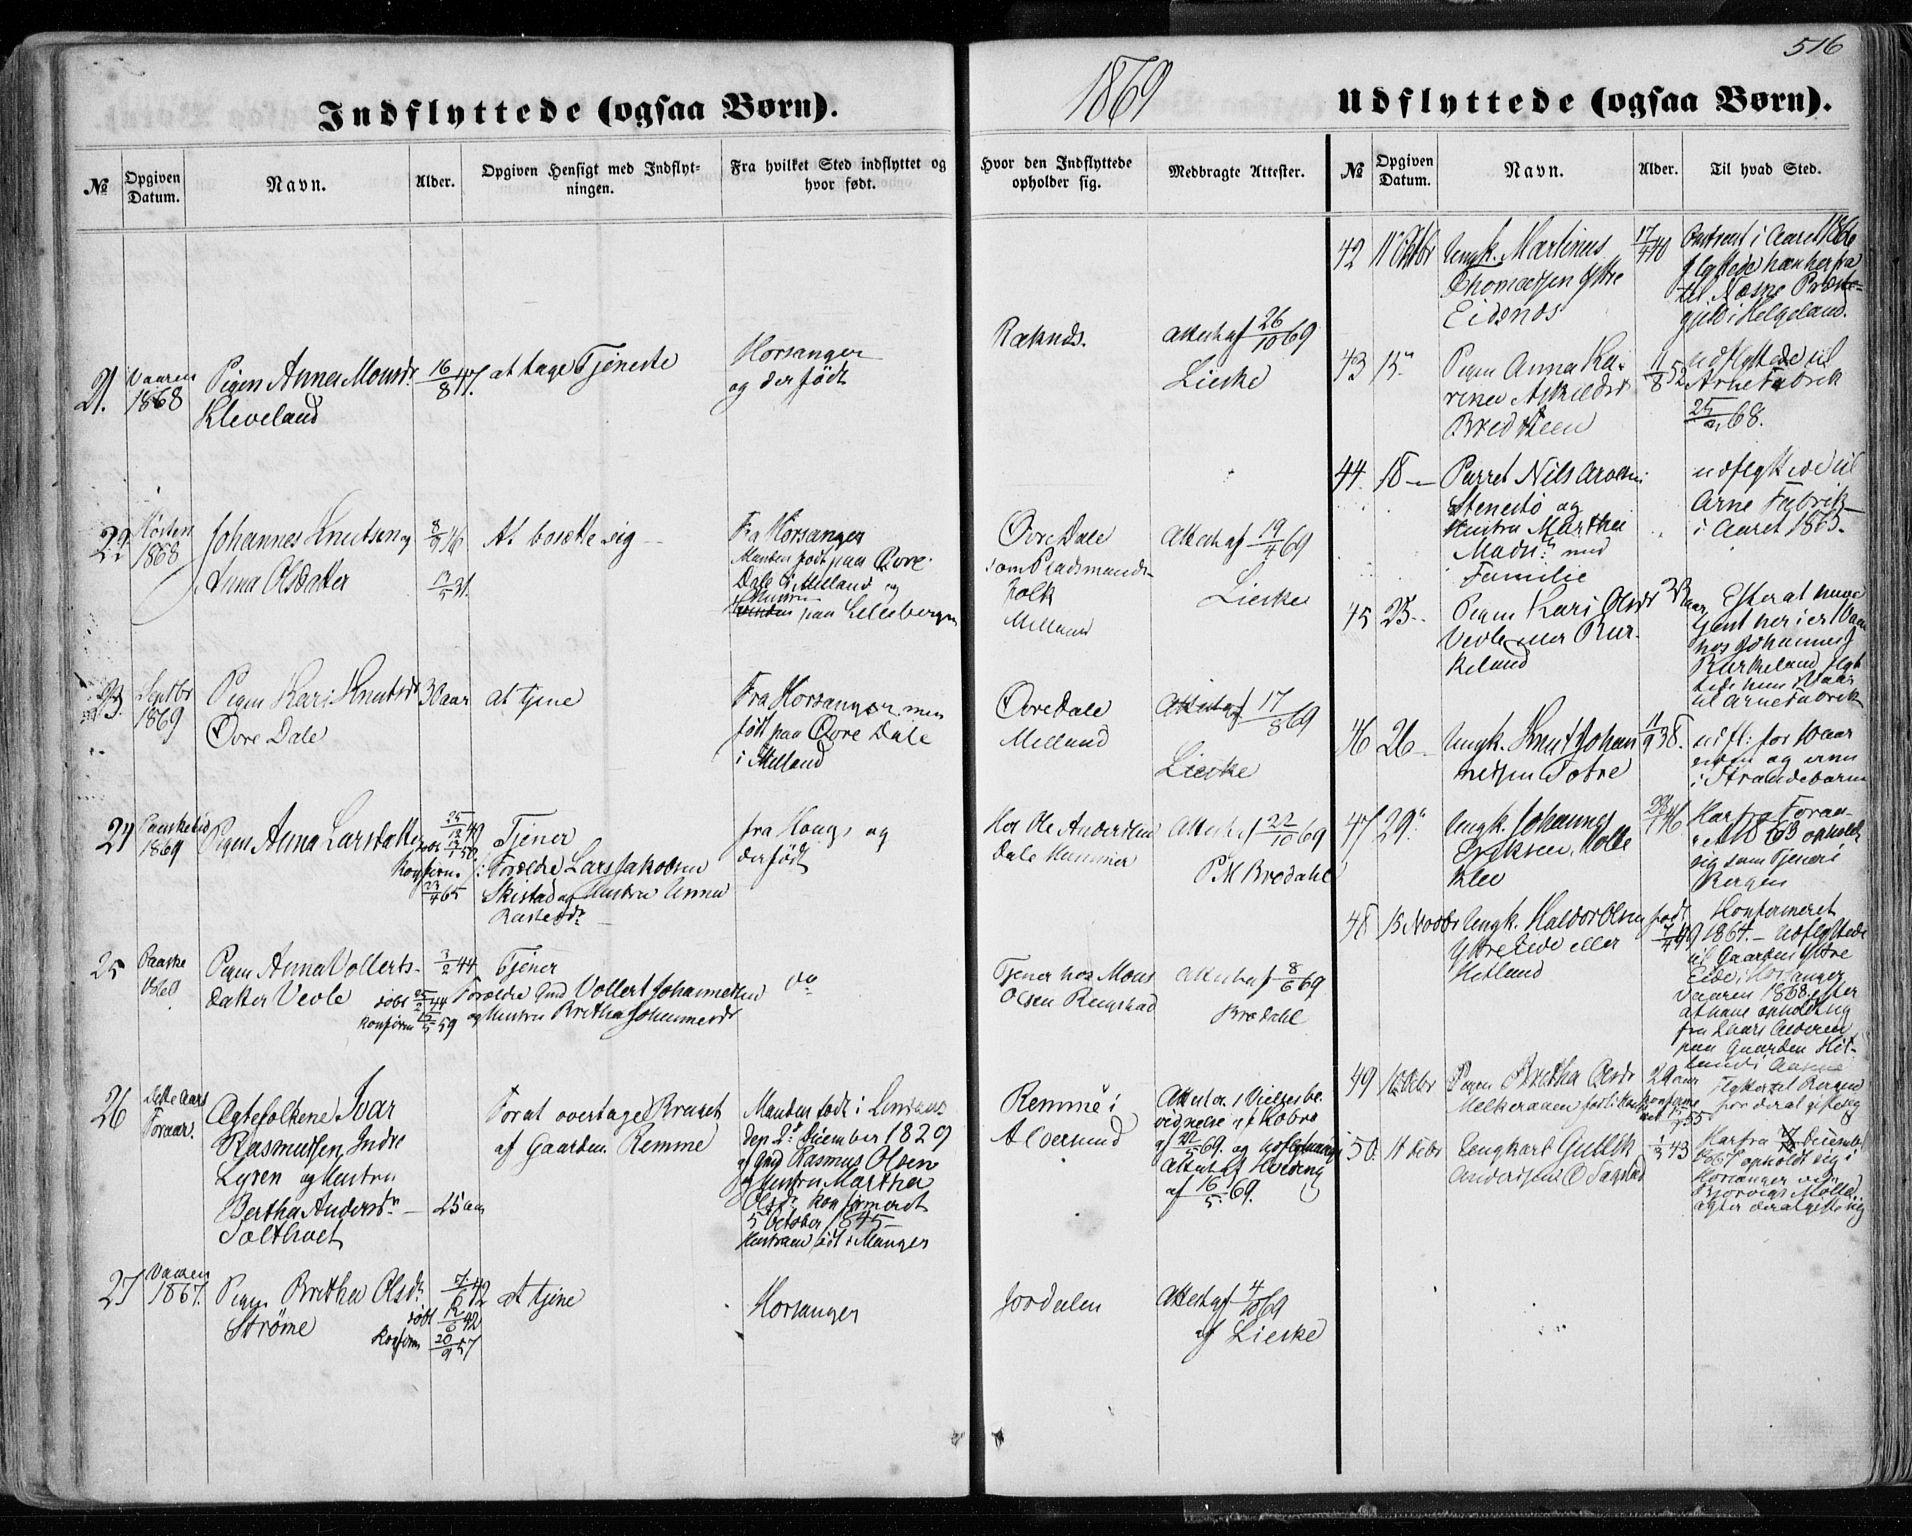 516
1869
Indflyttede (ogsaa Børn).
Udflyttede (ogsaa Børn).
№
Opgiven Datum.
Navn.
Alder.
Opgiven Hensigt med Indflyt-
ningen.
Fra hvilket Sted indflyttet og
hvor født.
Hvor den Indflyttede
opholder sig.
Medbragte Attester.
№
Opgiven Datum.
Navn.
Alder.
Til hvad Sted.
21.
Vaaren
1868
Pigen Anna Monsdr.
Kleveland
16/8 47.
at tage Tjeneste
Horsanger
og der født
Raknæs.
Attest af 26/10 69
Lieske
22
Høsten
1868
Johannes Knutsen og
Anna Olsdatter
At bosætte sig
Fra Horsanger
Manden født paa Øvre
Dale i Mælland og
Hustru
paa Lilleberge
Øvre Dale
som Pladsmands-
folk
Mælland
Attest af 19/4 69
Lieske
23.
Septbr
1869
Pigen Kari Knutsdr
Øvre Dale
30 aar
at tjene
Fra Horsanger men
født paa Øvre Dale
i Mælland
Øvre Dale
Mælland
Attest af 17/8 69
Lieske
24
Paasketid
1869
Pigen Anna Larsdatter
25/12 49
Konfirm.
23/4 65
Tjener
Forældre Lars Jakobsen
Skistad og Hustru Anna
fra Hougs og
der født
Hos Ole Andersen
Dale Hammer
Attest af 22/10 69
P M Bredahl
25
Paaske
Pigen Anna Vollerts-
datter Vevle
3/2 44
døbt 25/2 44
Konfirm 15/5 59
Tjener
Forældre Gmd Vollert Johannessen
og Hustru Britha Johannesdr
do
Tjener hos Mons
Olsen Ringstad
Attest af 8/6 69
Bredahl
26
Dette Aars
Foraar.
Ægtefolkene Ivar
Rasmussen Indre
Lyren og Hustru
Bertha Andersdr
Solthvet
25 aar
For at overtage Bruget
af Gaarden Remme
Manden født i Lindaas
den 2den December 1829
af Gmd Rasmus Olsen
og Hustru Martha
Olsdr. konfirmeret
5 October 1845
Hustruen født i Manger
Remme i
Alversund
Attester, Vielsesbe-
vidnelse af Kobro
af 22/5 69. og
Attest af Heiberg
af 16/5 69.
27
Vaaren
1867.
Pigen Britha Olsdr.
Strøme
7/6 42
døbt 12/6 42
Konfirm 20/9 57
at tjene
Horsanger
Jordalen
Attest af 4/10 69
af Lieske
42
11 Oktbr
Ungk. Martinus
Thomassen Ytre
Eidsnes
17/4 40
Omtrent i Aaret 1866
flyttede han herfra
til Næsne Præste-
gjeld i Helgeland.
43
15"
Pigen Anna Ka-
rina Askildsdr
Bredsteen
11/8 52
udflyttede til
Arne Fabrik
68.
44.
18 —
Parret Nils
Stenestø og
Hustru Martha
Madsdr. med
Familie
udflyttede til
Arne Fabrik
i Aaret 1865.
45
23
Pigen Kari Olsdr
Vevle eller Bur-
keland
Efter at have
tjent her i et Aar
hos Johannes
Burkeland, flyt-
tede hun i Vaar
til Arne Fabrik
46
26 —
Ungk. Knut Johan
nessen Tofte
11/9 38.
udfl: for 10 aar
siden og er nu
i Strandebarm
47
29"
Ungk. Johannes
Eriksen Molle
Klev
Har fra Foraa-
ret 1863 opholdt
sig som Tjener i
Bergen
48
15 Novbr
Ungk. Haldor Olsen
Ytre Eide eller
Hitland
født
Konfirmeret
1864. — udflyttede
til Gaarden Ytre
Eide, Horsanger
Vaaren 1868 efter
at have opholdt sig
paa Gaarden Hit-
land
49
Pigen Britha Olsdr
29 aar
flyttet til Bergen
for der at gifte sig
50.
11 Debr
Ungkarl Gullik
Andersen
1/3 43
Har fra
1867 opholdt sig i
Horsanger ved
Bjørviks Mølle..
agter der at gifte sig